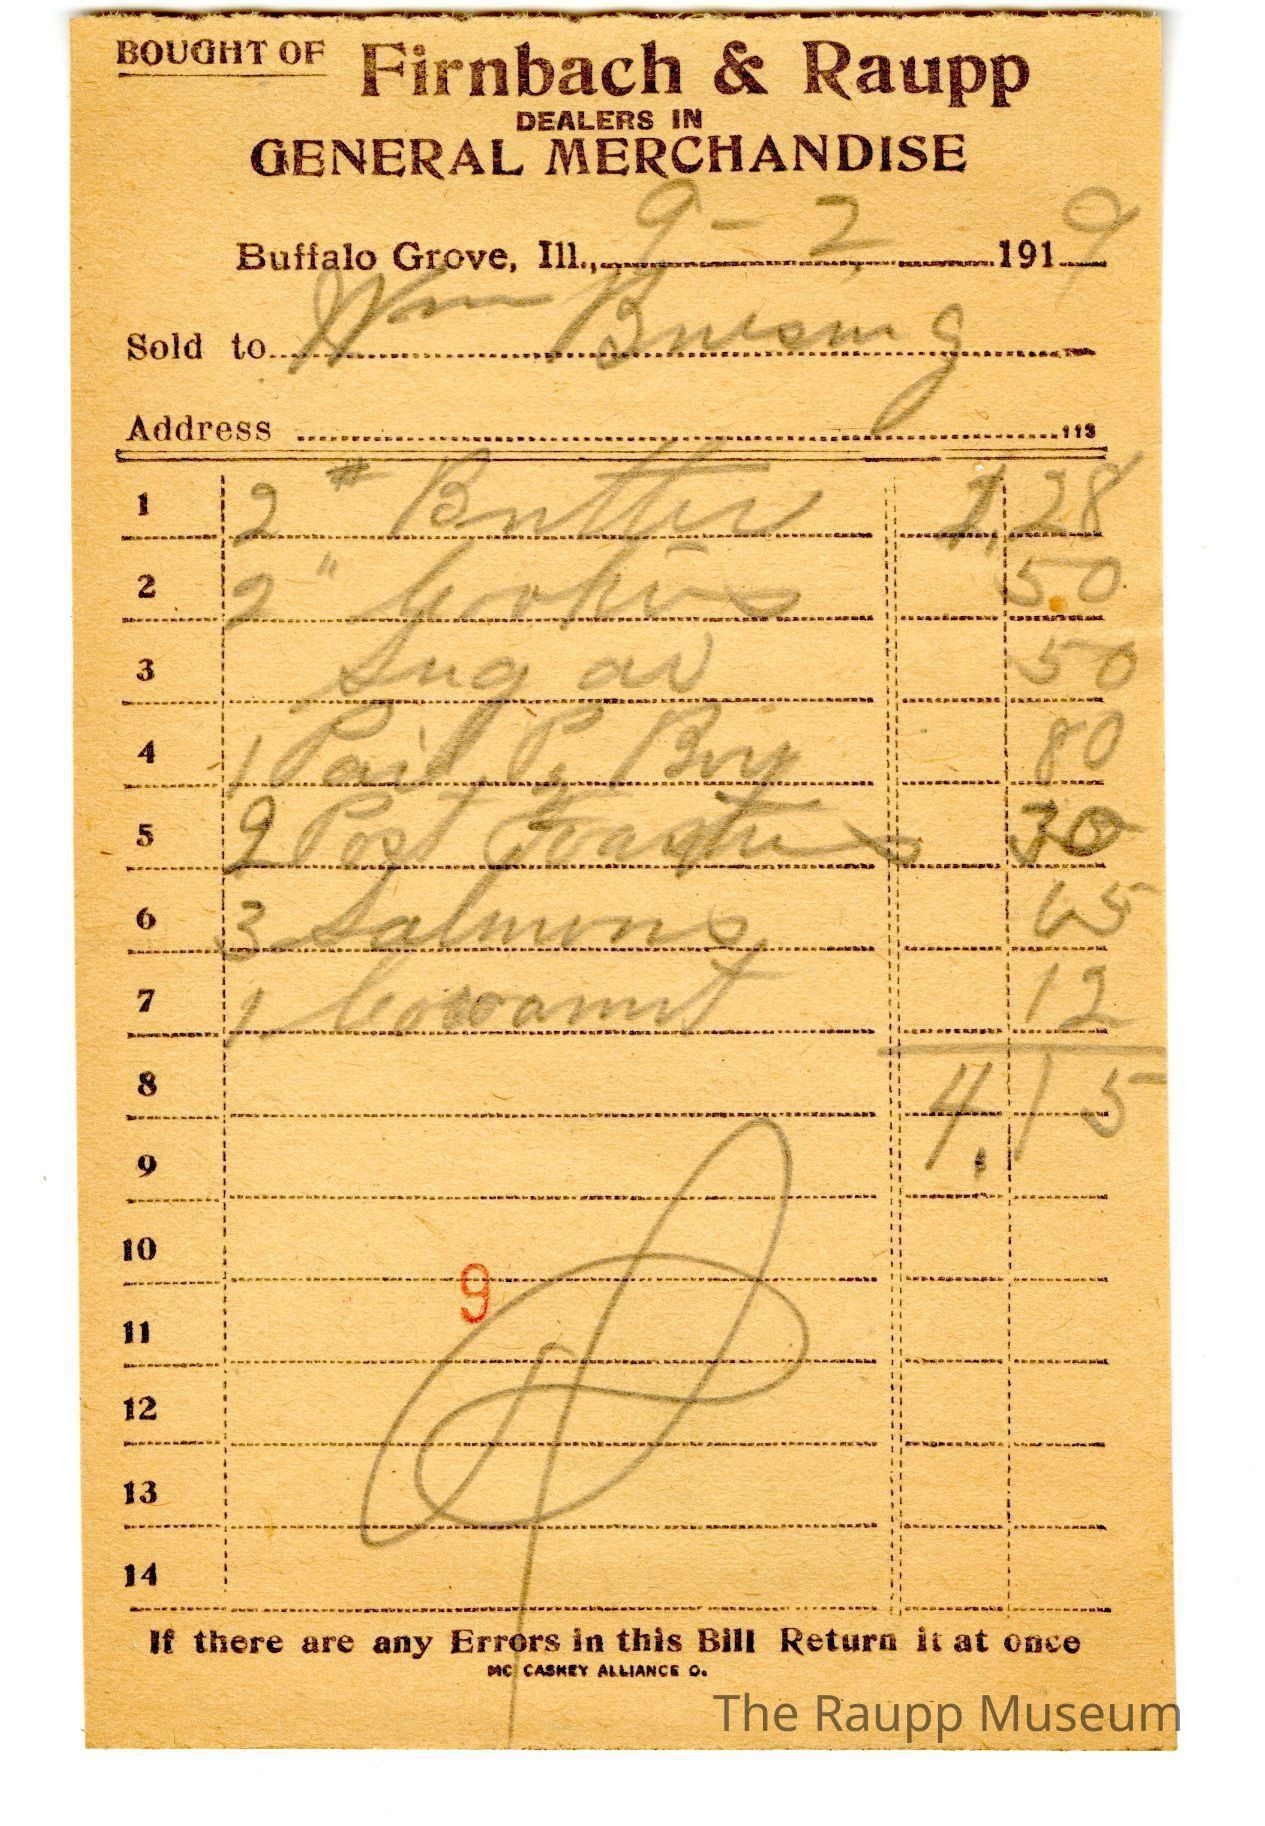 BOUGHT OF Firnbach & Raupp
DEALERS IN
GENERAL MERCHANDISE
Buffalo Grove, Ill., 9-2 1919
Sold to Wm Buesing
Address 113
1 2 # Butter 1.28
2 2 " Cookies 50
3 Sugar 50
4 1 Pail P. Boy 80
5 2 Post Toasties 30
6 3 Salmons 65
7 1 Cocoanut 12
8 4.15
9
10
9
11
12
13
14
If there are any Errors in this Bill Return it at once
MC CASKEY ALLIANCE O.
The Raupp Museum